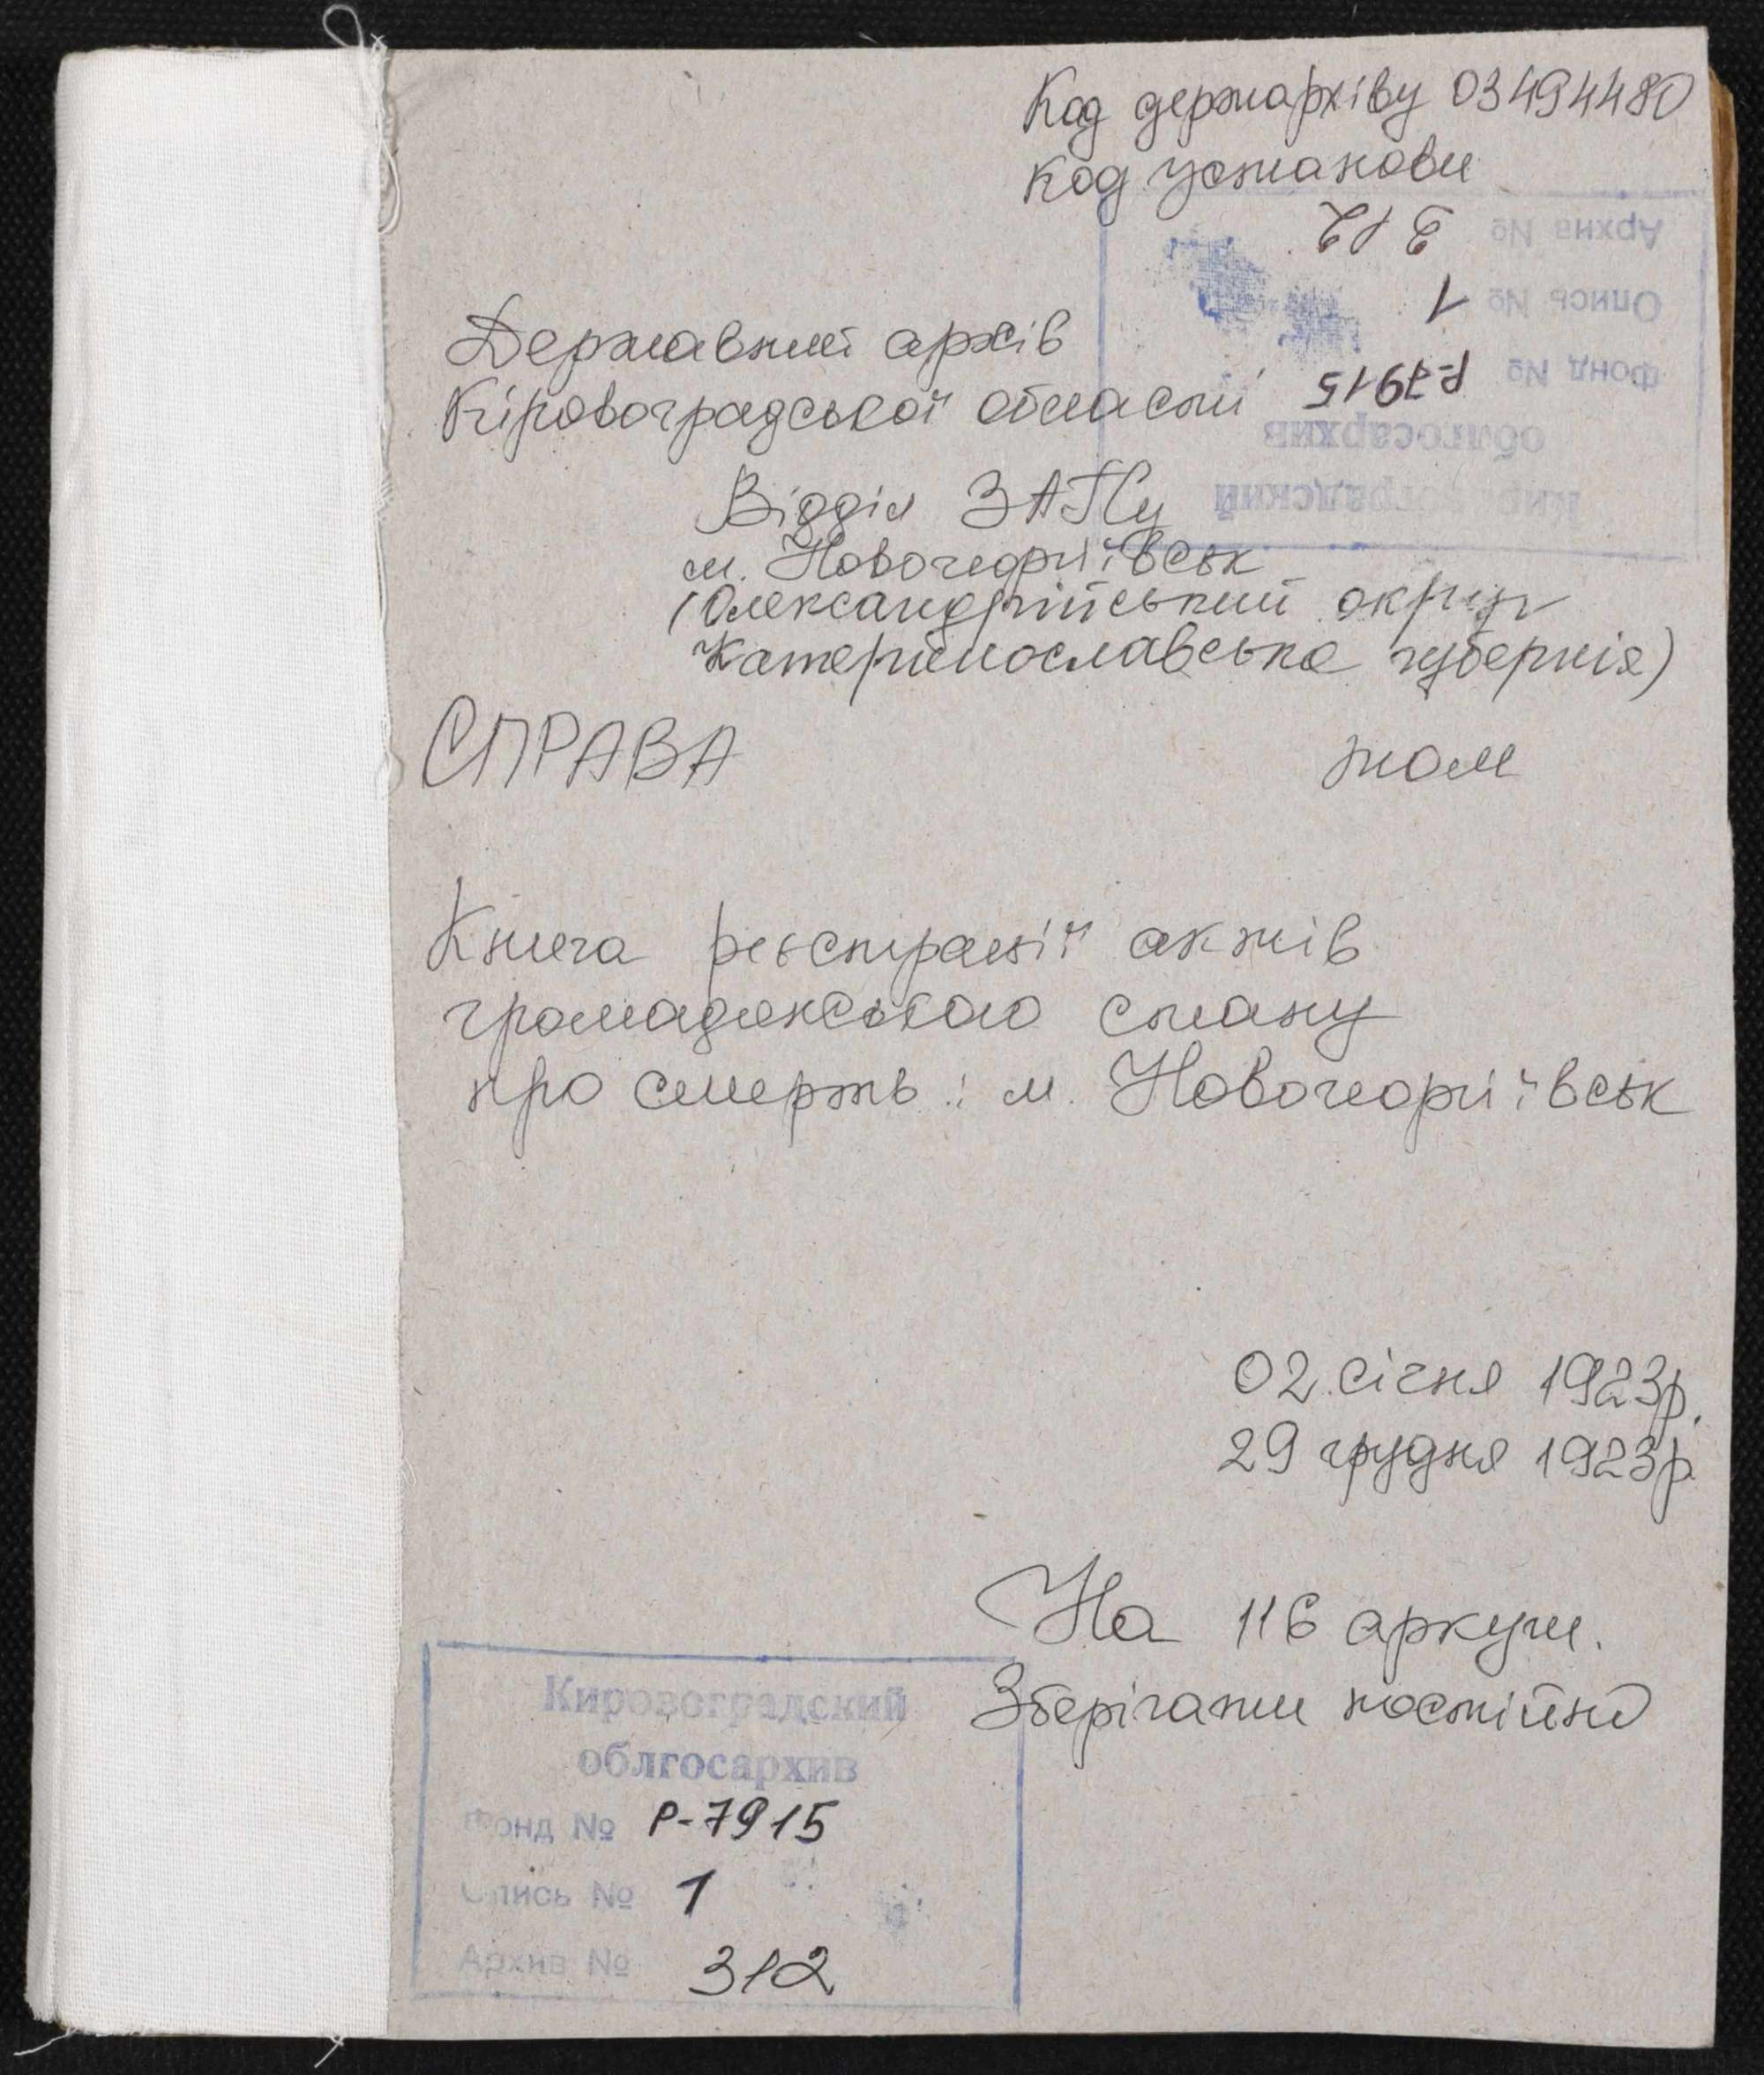 Код держархіву 03494480
Код установи
Архив № 312
Опись № 1
Фонд № Р-7915
облгосархив
Кировоградский
Державний архів
Кіровоградської області
Відділ ЗАГСу
м. Новогеоргіївськ
(Олександрійський округ
Катеринославська губернія)
СПРАВА том
Книга реєстрації актів
громадянського стану
про смерть: м. Новогеоргіївськ
02 січня 1923р.
29 грудня 1923р.
На 116 аркуш.
Зберігати постійно
Кировоградский
облгосархив
Фонд № Р-7915
Опись № 1
Архив № 312